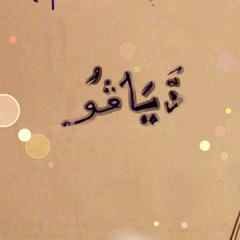 دَيَاقُو